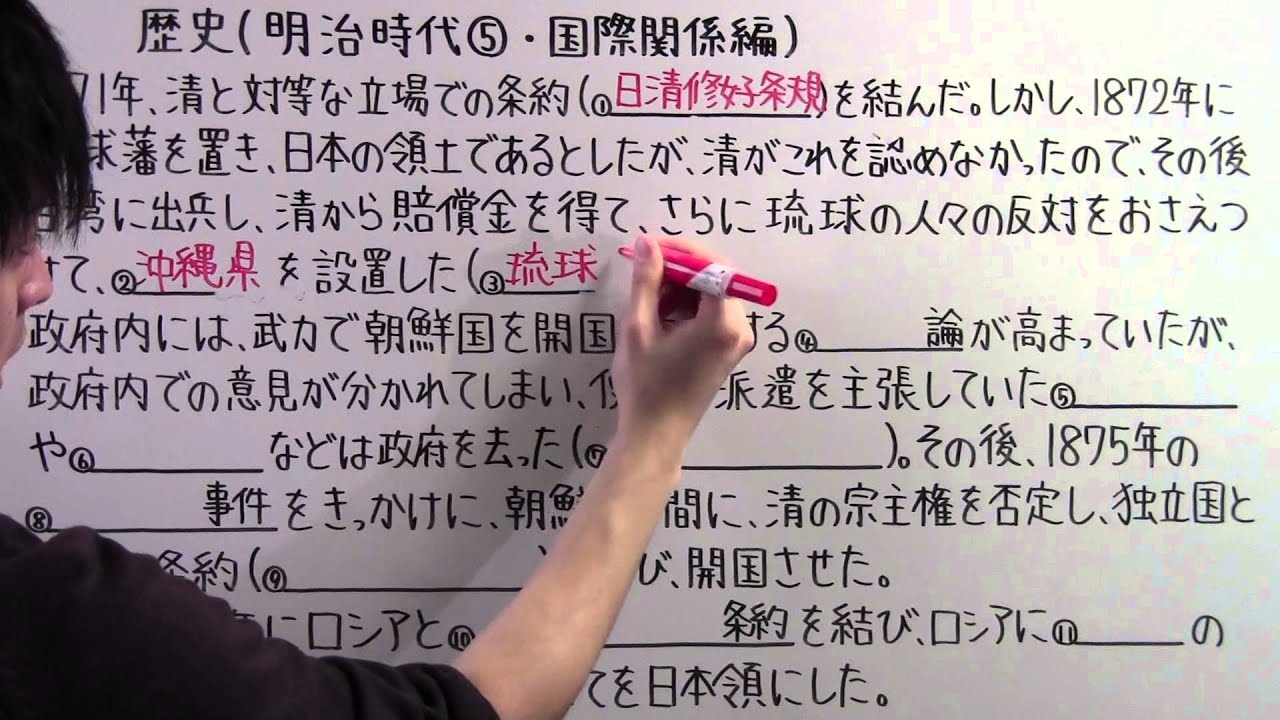 歴史(明治時代⑤・国際関係編)
71年、清と対等な立場での条約(①日清修好条規)を結んだ。しかし、1872年に
球藩を置き、日本の領土であるとしたが、清がこれを認めなかったので、その後
湾に出兵し、清から賠償金を得て、さらに琉球の人々の反対をおさえつ
けて、②沖縄県を設置した(③琉球
政府内には、武力で朝鮮国を開国 する④ 論が高まっていたが、
政府内での意見が分かれてしまい、 派遣を主張していた⑤
や⑥ などは政府を去った(⑦ )。その後、1875年の
⑧ 事件をきっかけに、朝鮮 間に、清の宗主権を否定し、独立国と
条約(⑨ び、開国させた。
にロシアと⑩ 条約を結び、ロシアに⑪ の
てを日本領にした。